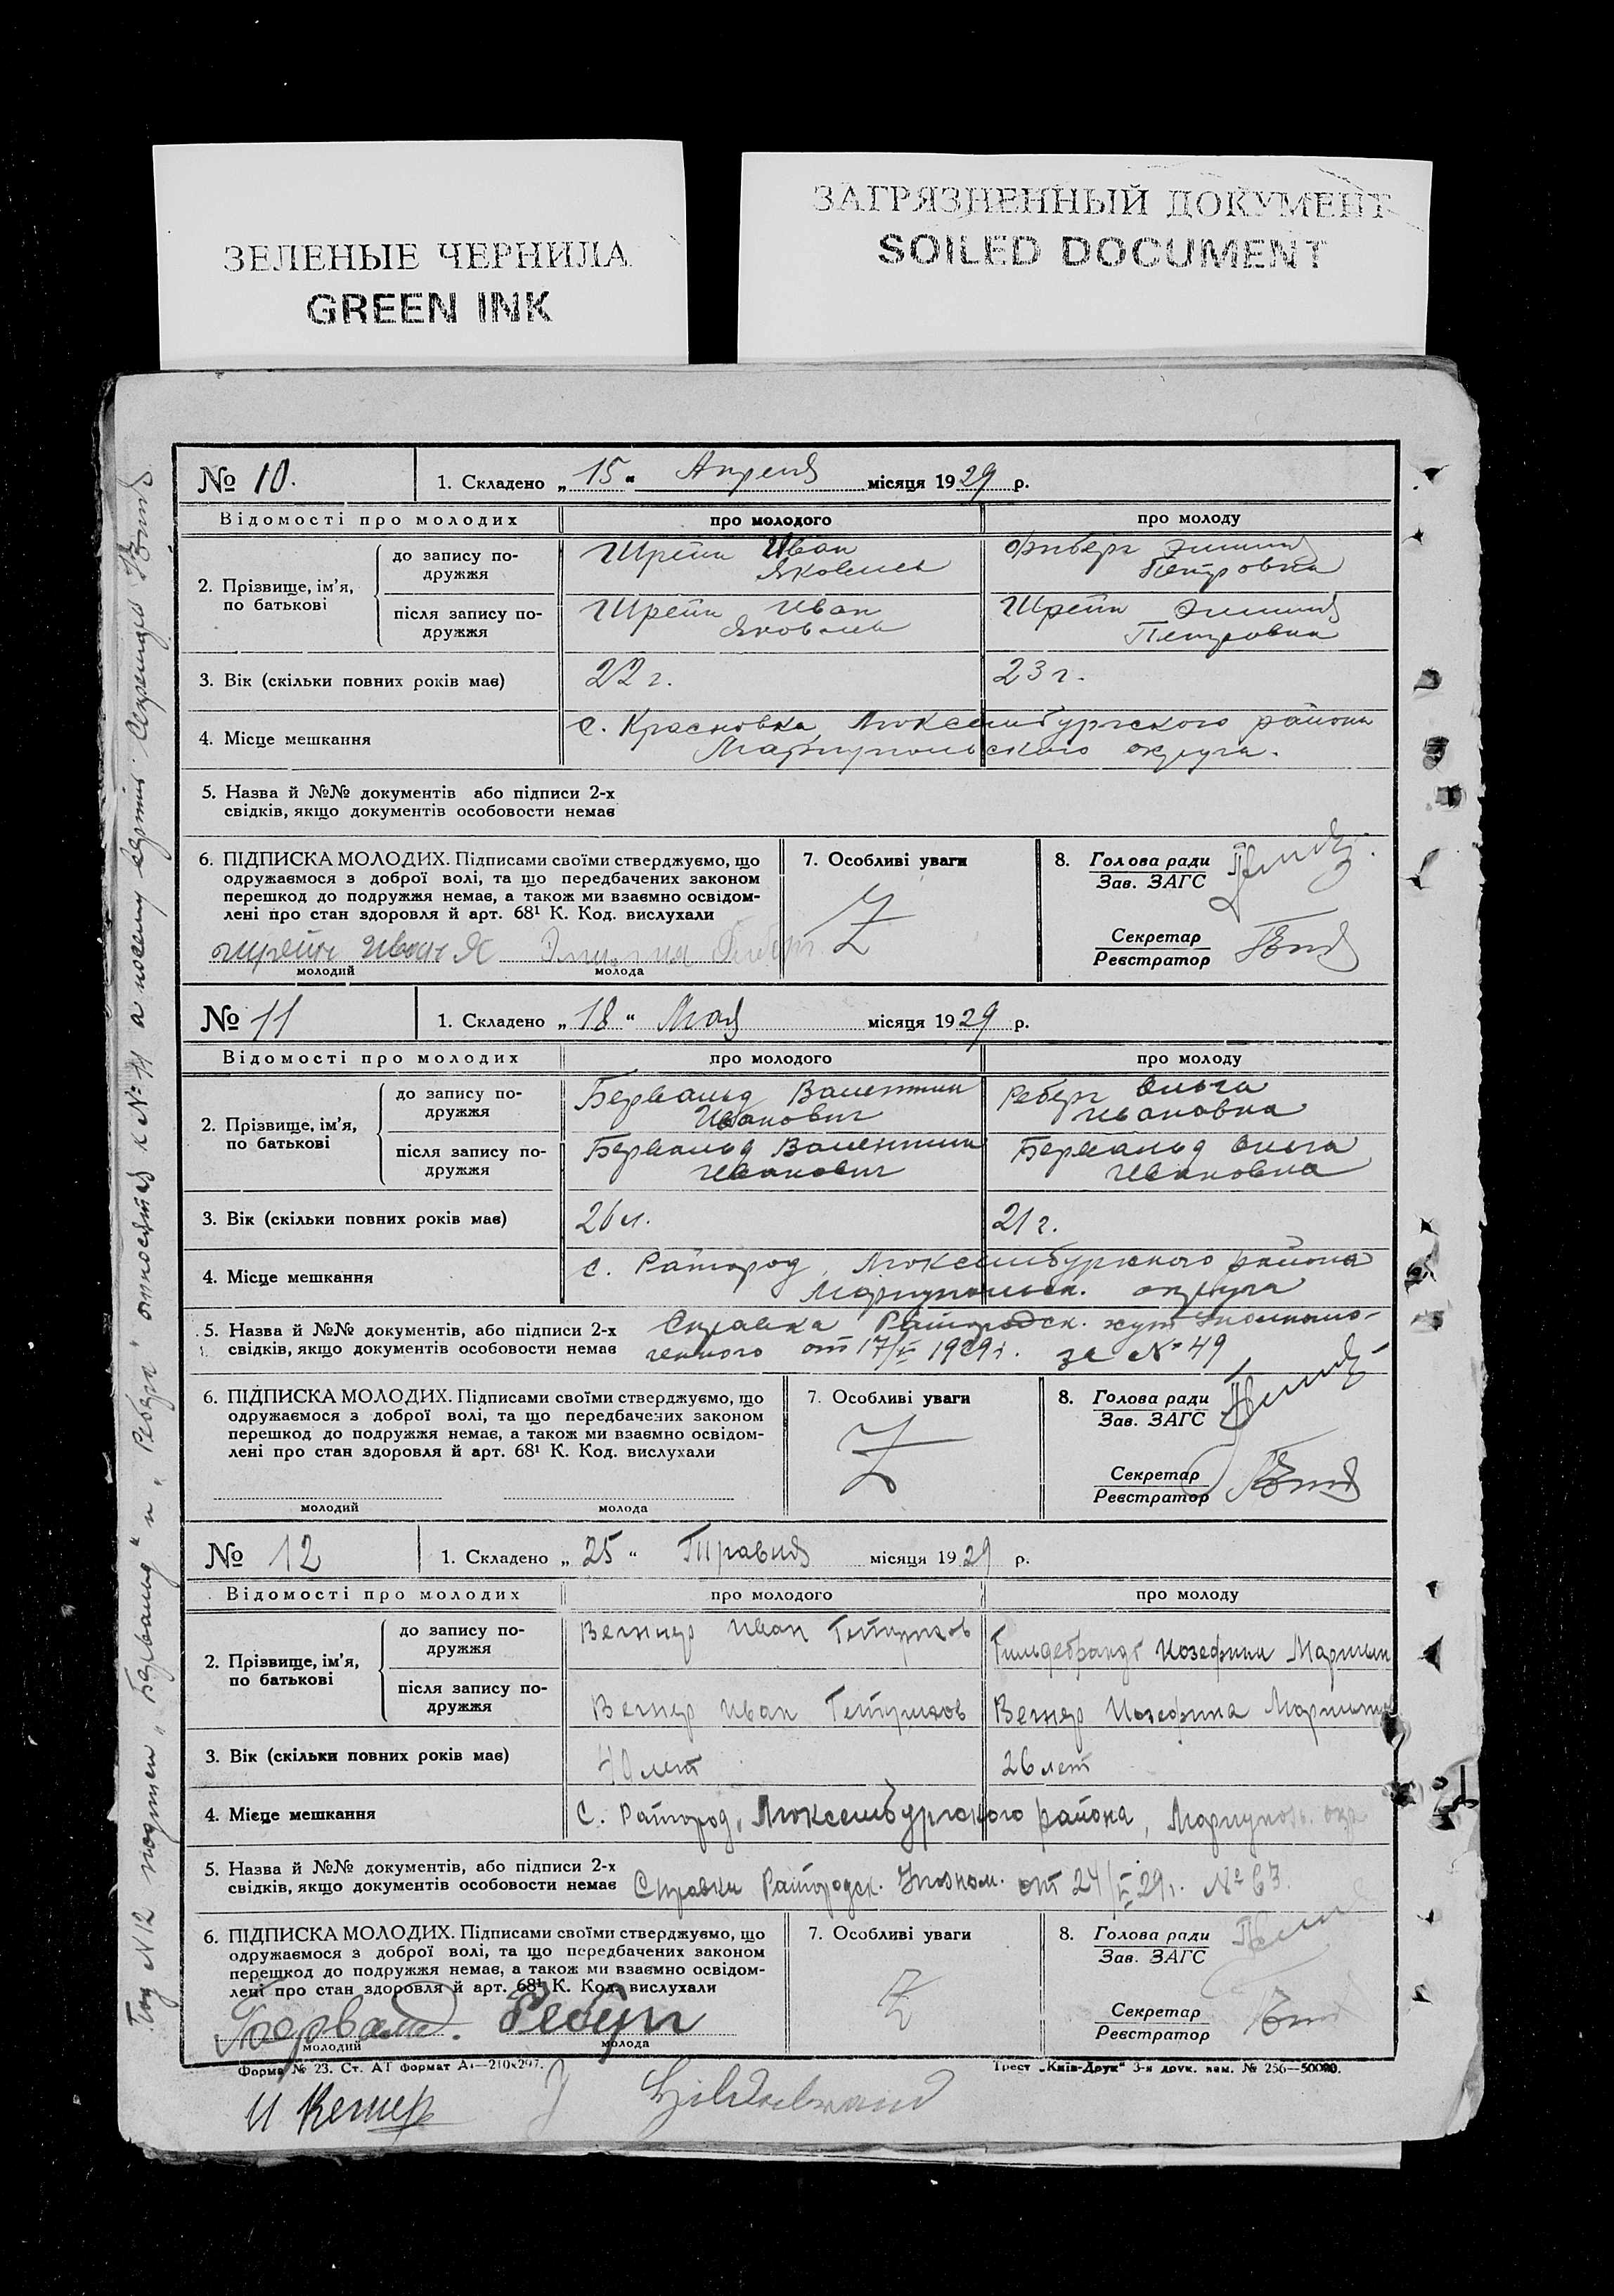 ЗЕЛЕНЫЕ ЧЕРНИЛА
GREEN INK
ЗАГРЯЗНЕННЫЙ ДОКУМЕНТ
SOILED DOCUMENT
№ 10.
1. Складено „ 15 “ Апреля місяця 1929 р.
Відомості про молодих
про молодого
про молоду
2. Прізвище, ім’я, по батькові
до запису по-
дружжя
Шрейн Иван
Яковлев
Фиберг Эмилия
Петровна
після запису по-
дружжя
Шрейн Иван
Яковлев
Шрейн Эмилия
Петровна
3. Вік (скільки повних років має)
22 г.
23 г.
4. Місце мешкання
с. Красновка Люксембургского района
Мариупольского округа.
5. Назва й №№ документів або підписи 2-х
свідків, якщо документів особовости немає
6. ПІДПИСКА МОЛОДИХ. Підписами своїми стверджуємо, що
одружаємося з доброї волі, та що передбачених законом
перешкод до подружжя немає, а також ми взаємно освідом-
лені про стан здоровля й арт. 68¹ К. Код. вислухали
шрейн Иван Я
молодий
молода
7. Особливі уваги
Z
8. Голова ради
Зав. ЗАГС
Секретар
Реєстратор
№ 11
1. Складено „ 18 “ Мая місяця 1929 р.
Відомості про молодих
про молодого
про молоду
2. Прізвище, ім’я,
по батькові
до запису по-
дружжя
Бервальд Валентин
Иванович
Реберг Ольга
Ивановна
після запису по-
дружжя
Бервальд Валентин
Иванович
Бервальд Ольга
Ивановна
3. Вік (скільки повних років має)
26 л.
21 г.
4. Місце мешкання
с. Райгород, Люксембургского района
Мариупольск. округа
5. Назва й №№ документів, або підписи 2-х
свідків, якщо документів особовости немає
Справка Райгородск. хут Уполномо-
ченного от 17/V 1929 г. за № 49
6. ПІДПИСКА МОЛОДИХ. Підписами своїми стверджуємо, що
одружаємося з доброї волі, та що передбачених законом
перешкод до подружжя немає, а також ми взаємно освідом-
лені про стан здоровля й арт. 68¹ К. Код. вислухали
молодий
молода
7. Особливі уваги
Z
8. Голова ради
Зав. ЗАГС
Секретар
Реєстратор
№ 12
1. Складено „ 25 “ Травня місяця 1929 р.
Відомості про молодих
про молодого
про молоду
2. Прізвище, ім’я,
по батькові
до запису по-
дружжя
Вегнер Иван Гейнрихов
Гильдебрандт Иозефина Мартин
після запису по-
дружжя
Вегнер Иван Гейнрихов
Вегнер Иозефина Мартин
3. Вік (скільки повних років має)
40 лет
26 лет
4. Місце мешкання
С. Райгород, Люксембургского района, Мариупол. окр
5. Назва й №№ документів, або підписи 2-х
свідків, якщо документів особовости немає
Справка Райгородск. Уполном. от 24/V 29 г. № 63.
6. ПІДПИСКА МОЛОДИХ. Підписами своїми стверджуємо, що
одружаємося з доброї волі, та що передбачених законом
перешкод до подружжя немає, а також ми взаємно освідом-
лені про стан здоровля й арт. 68¹ К. Код. вислухали
Бервальд. Реберг
молодий
молода
7. Особливі уваги
Z
8. Голова ради
Зав. ЗАГС
Секретар
Реєстратор
Форма № 23. Ст. АТ формат А₄—210х297.
Трест „Київ-Друк“ 3-я друк. зам. № 256—50000.
И Вегнер J Hildebrand
Под N 12 подписи „Бервальд“ и „Реберг“ относятся к № 11 а посему верны. Секретарь